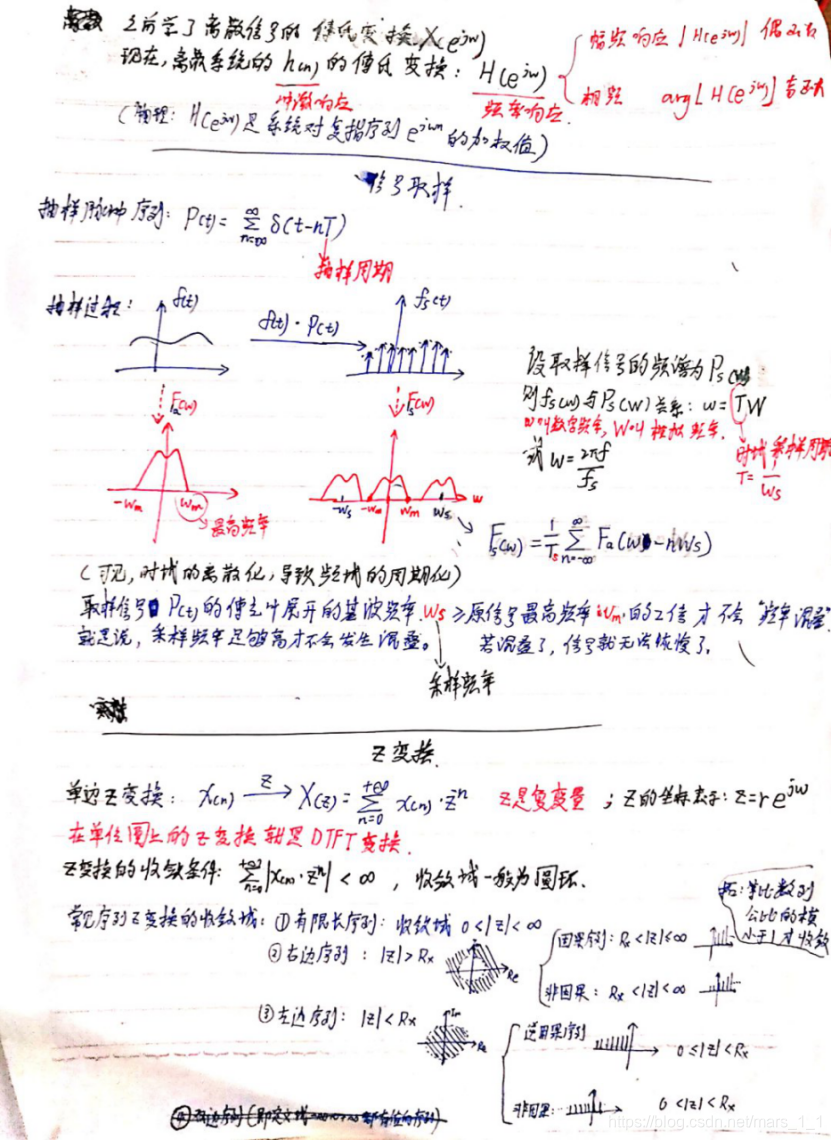 之前学了离散信号的 傅氏变换 X(e^{jw})
现在,离散系统的 h(n) 的傅氏变换: H(e^{jw})
幅频响应 |H(e^{jw})| 偶函数
相频 arg[H(e^{jw})] 奇函数
冲激响应
频率响应.
(物理: H(e^{jw})是系统对复指序列 e^{jwn} 的加权值)
信号取样.
抽样脉冲序列: P(t) = ∑_{n=-∞}^{∞} δ(t-nT)
抽样周期
抽样过程:
f(t)
f(t)·P(t)
fs(t)
设取样信号的频谱为Ps(w)
则fs(w)与Ps(W)关系: w=TW
w叫数字频率, W叫模拟频率.
或 w = 2πf/fs
时域采样周期
T = 1/Ws
Fa(w)
Fs(w)
-Wm
Wm
最高频率
-Ws -Wm Wm Ws w
Fs(w) = 1/Ts ∑_{n=-∞}^{∞} Fa(w-nWs)
(可见,时域的离散化,导致频域的周期化)
取样信号P(t)的傅立叶展开的基波频率Ws≥原信号最高频率Wm的2倍才不会"频率混叠".
就是说,采样频率足够高才不会发生混叠。 若混叠了,信号就无法恢复了.
采样频率
Z变换.
单边Z变换: x(n) —Z→ X(z) = ∑_{n=0}^{+∞} x(n)·z^n Z是复变量 ; Z的坐标表示: z=re^{jw}
在单位圆上的Z变换就是DTFT变换.
Z变换的收敛条件: ∑_{n=0}^{+∞} |x(n)·z^n| < ∞ , 收敛域一般为圆环.
拓:等比数列
公比的模
小于1才收敛
常见序列Z变换的收敛域: ①有限长序列: 收敛域 0<|z|<∞
②右边序列 : |z|>Rx
Re
因果序列: Rx<|z|≤∞
非因果: Rx<|z|<∞
③左边序列: |z|<Rx
Im
Re
逆因果序列 0≤|z|<Rx
非因果: 0<|z|<Rx
https://blog.csdn.net/mars_1_1